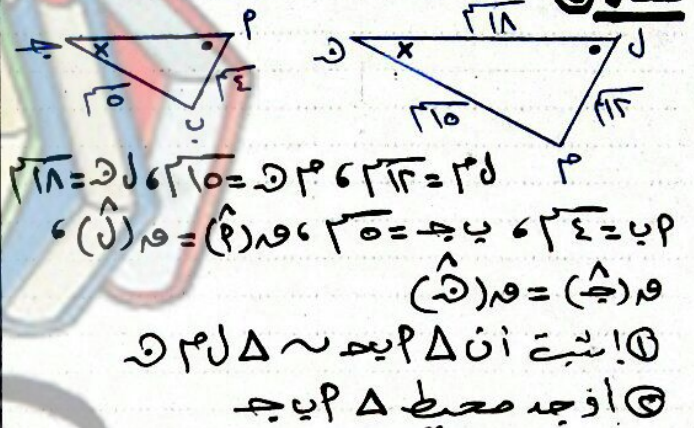 ١٨سم
ل
ن
×
١٢سم
١٥سم
م
أ
جـ
×
٤سم
٥سم
ب
ل م = ١٢سم ، م ن = ١٥سم ، ل ن = ١٨سم
أ ب = ٤سم ، ب جـ = ٥سم ، ق(أ̂) = ق(ل̂) ،
ق(جـ̂) = ق(ن̂)
① إثبت أن Δ أ ب جـ ~ Δ ل م ن
② أوجد محيط Δ أ ب جـ